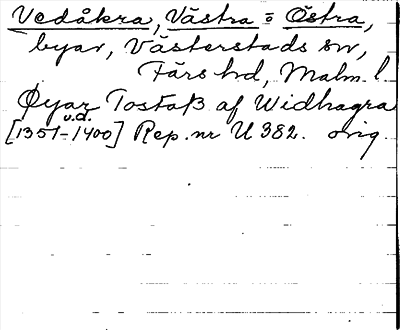 Vedåkra, Västra o Östra,
byar, Västerstads sn,
Färs hd, Malm. l.
Øyar Tostaß af Widhagra
u.d.
[1351-1400] Rep. nr U 382. orig.